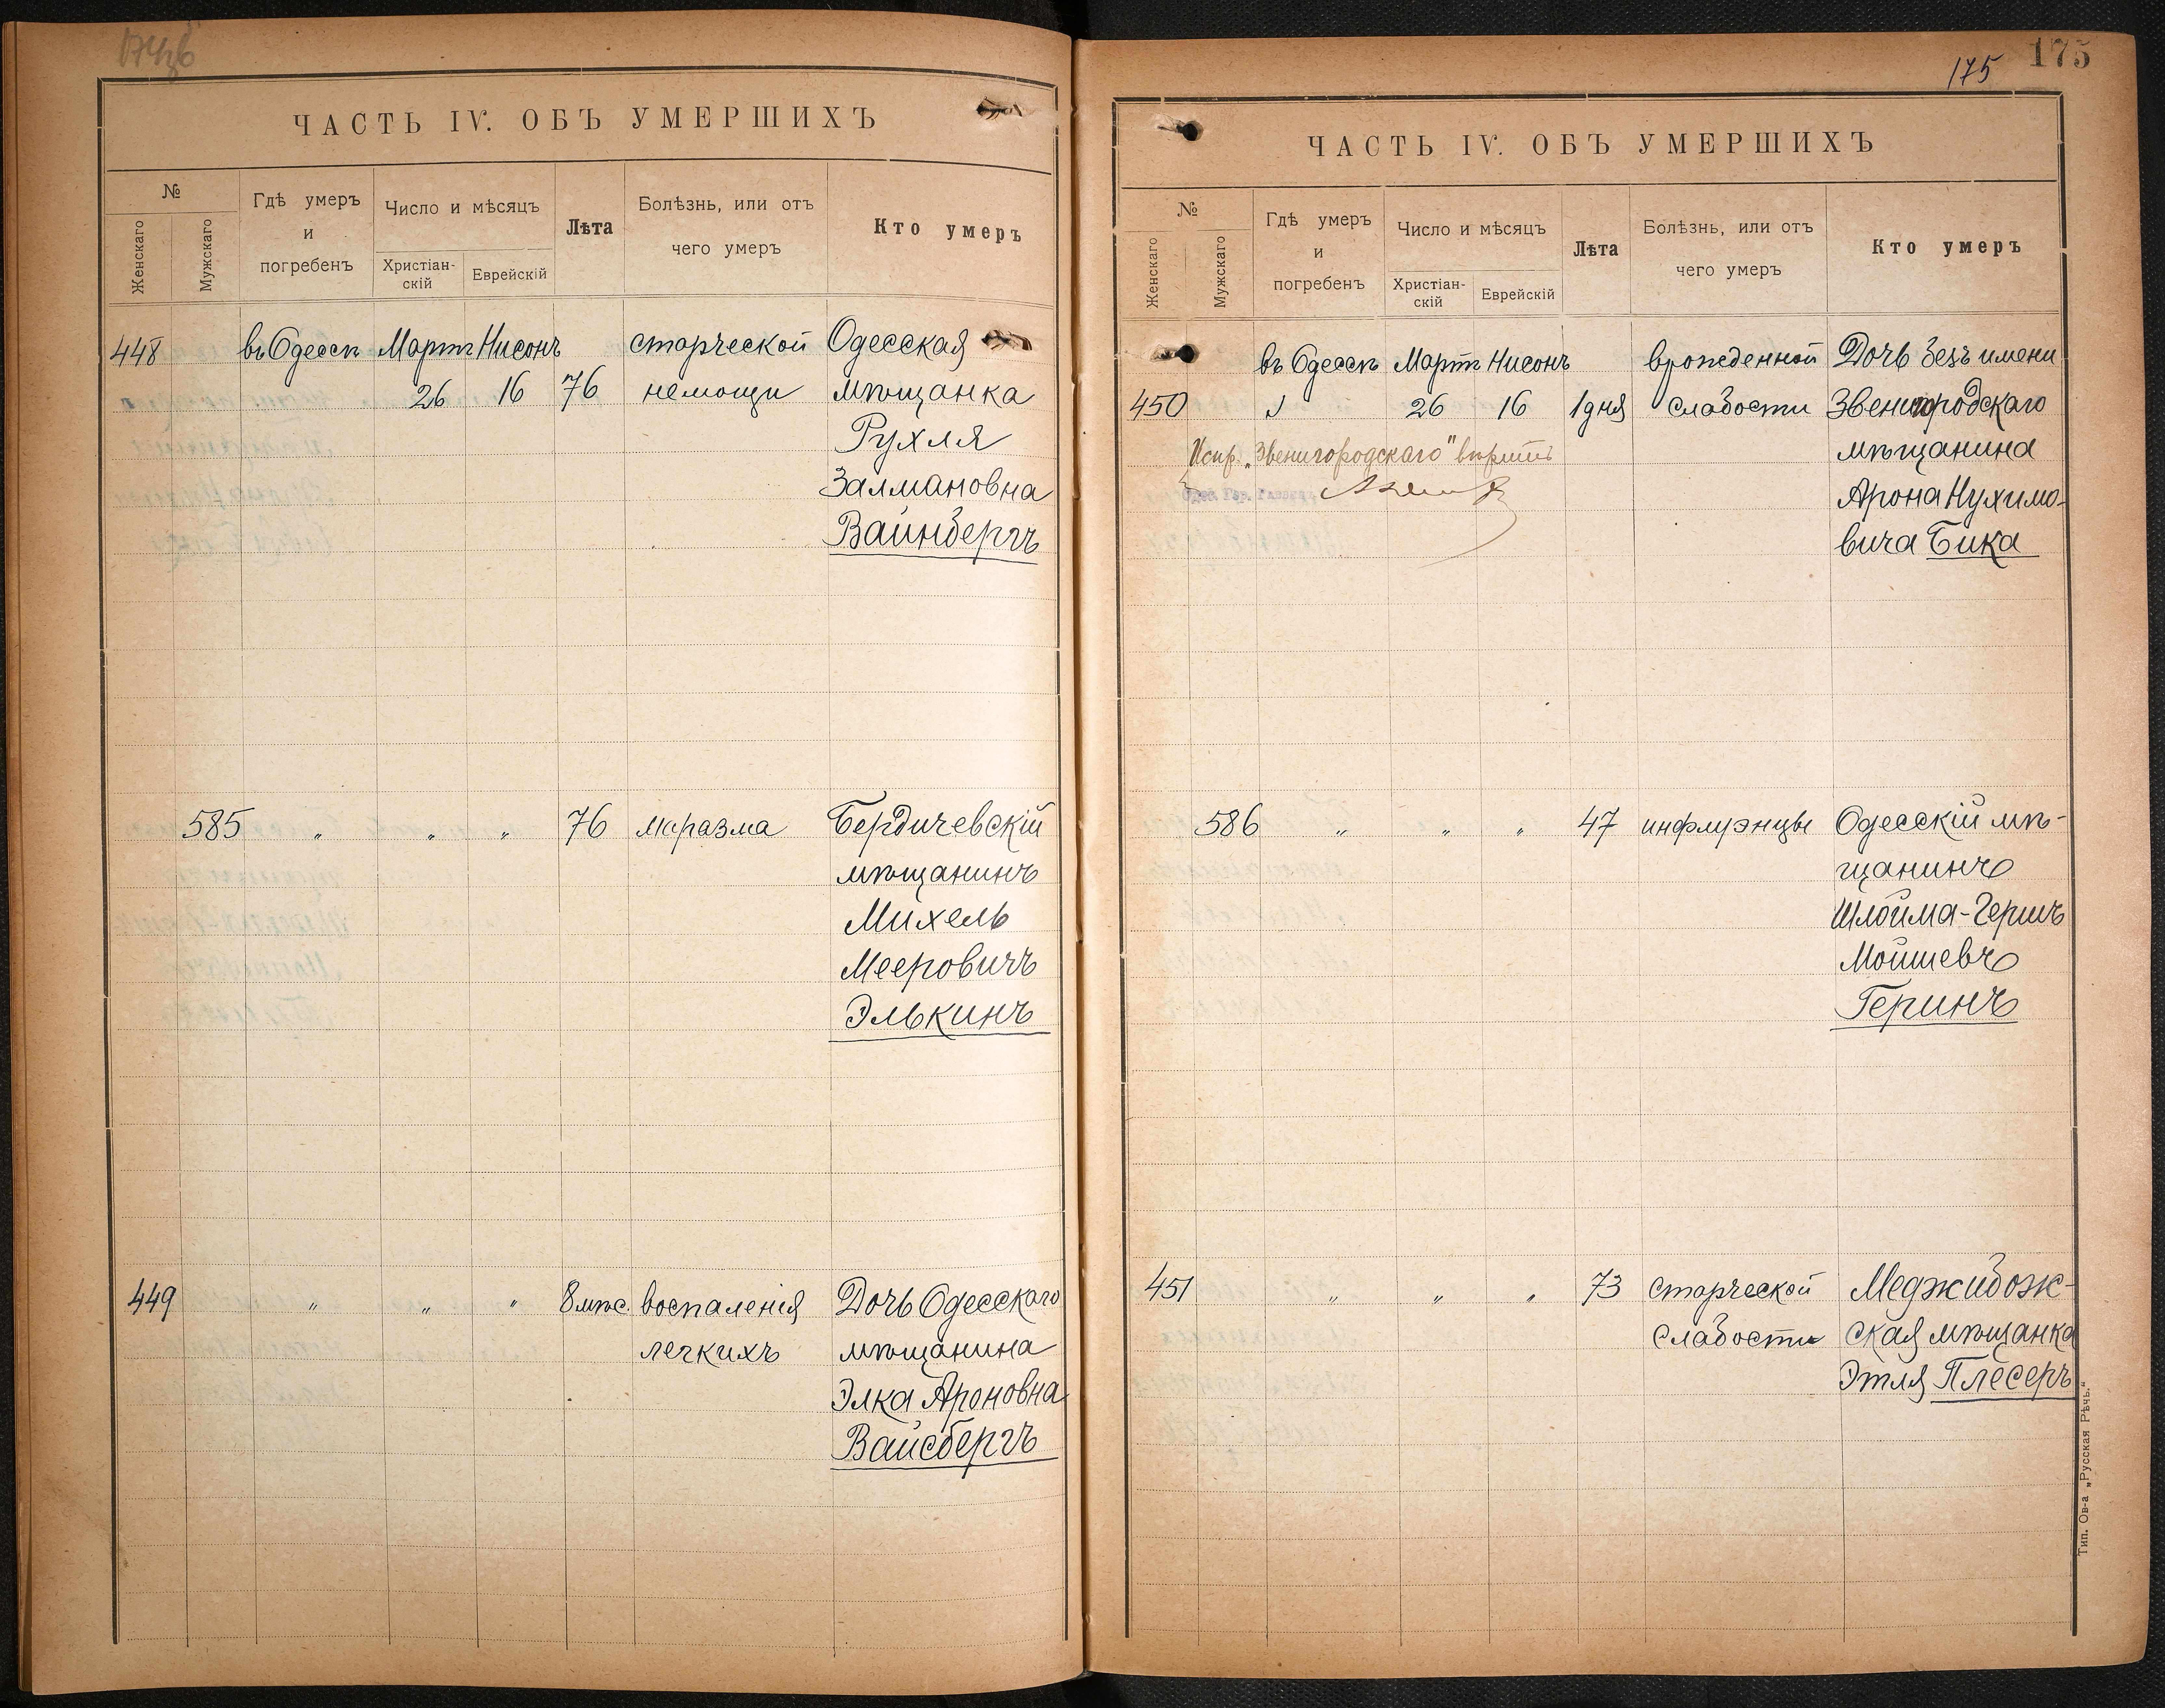 ЧАСТЬ IV. ОБЪ УМЕРШИХЪ
№
Женскаго
Мужскаго
Гдѣ умеръ
и
погребенъ
Число и мѣсяцъ
Христіан-
скій
Еврейскій
Лѣта
Болѣзнь, или отъ
чего умеръ
Кто умеръ
448 въ Одессѣ Мартъ Нисонъ старческой Одесская
26 16 76 немощи мѣщанка
Рухля
Залмановна
Вайнбергъ
585 " " " 76 маразма Бердичевскій
мѣщанинъ
Михель
Мееровичъ
Элькинъ
449 " " " 8 мѣс. воспаленія Дочь Одесскаго
легкихъ мѣщанина
Элка Ароновна
Вайсбергъ
175 175
ЧАСТЬ IV. ОБЪ УМЕРШИХЪ
№
Женскаго
Мужскаго
Гдѣ умеръ
и
погребенъ
Число и мѣсяцъ
Христіан-
скій
Еврейскій
Лѣта
Болѣзнь, или отъ
чего умеръ
Кто умеръ
въ Одессѣ Мартъ Нисонъ врожденной Дочь безъ имени
450 26 16 1 дня слабости Звенигородскаго
Испр. „Звенигородскаго" вѣрить мѣщанина
Арона Нухимо-
вича Бика
586 " " " 47 инфлуэнцы Одесскій мѣ-
щанинъ
Шлойма-Гершъ
Мойшевъ
Геринъ
451 " " " 73 старческой Меджибож-
слабости ская мѣщанка
Этля Плесеръ
Тип. Ов-а „Русская Рѣчь."